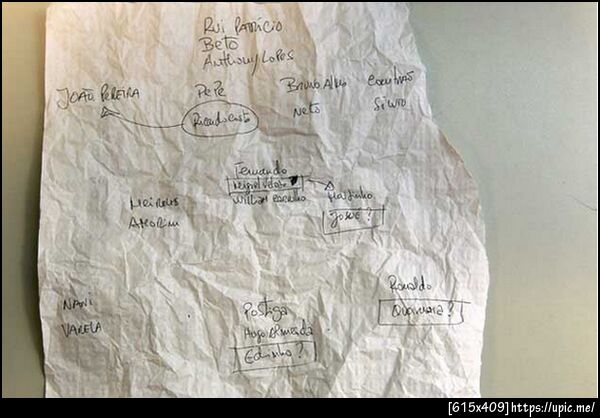 Rui Patrício
Beto
Anthony Lopes
João Pereira
Pepe
Ricardo Costa
Bruno Alves
Neto
Coentrão
Silvio
Fernando
Miguel Veloso
William Carvalho
Meireles
Amorim
Moutinho
Josué?
Nani
Varela
Postiga
Hugo Almeida
Edinho?
Ronaldo
Quaresma?
[615x409]https://upic.me/